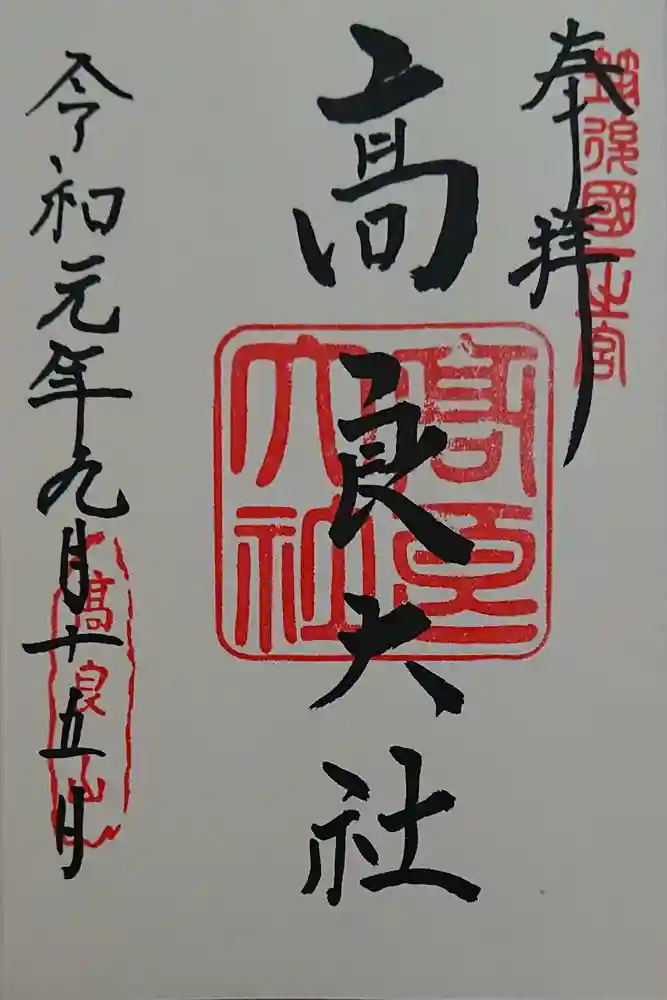 筑後國一之宮
奉拝
高良大社
高良大社
令和元年九月十五日
高良山